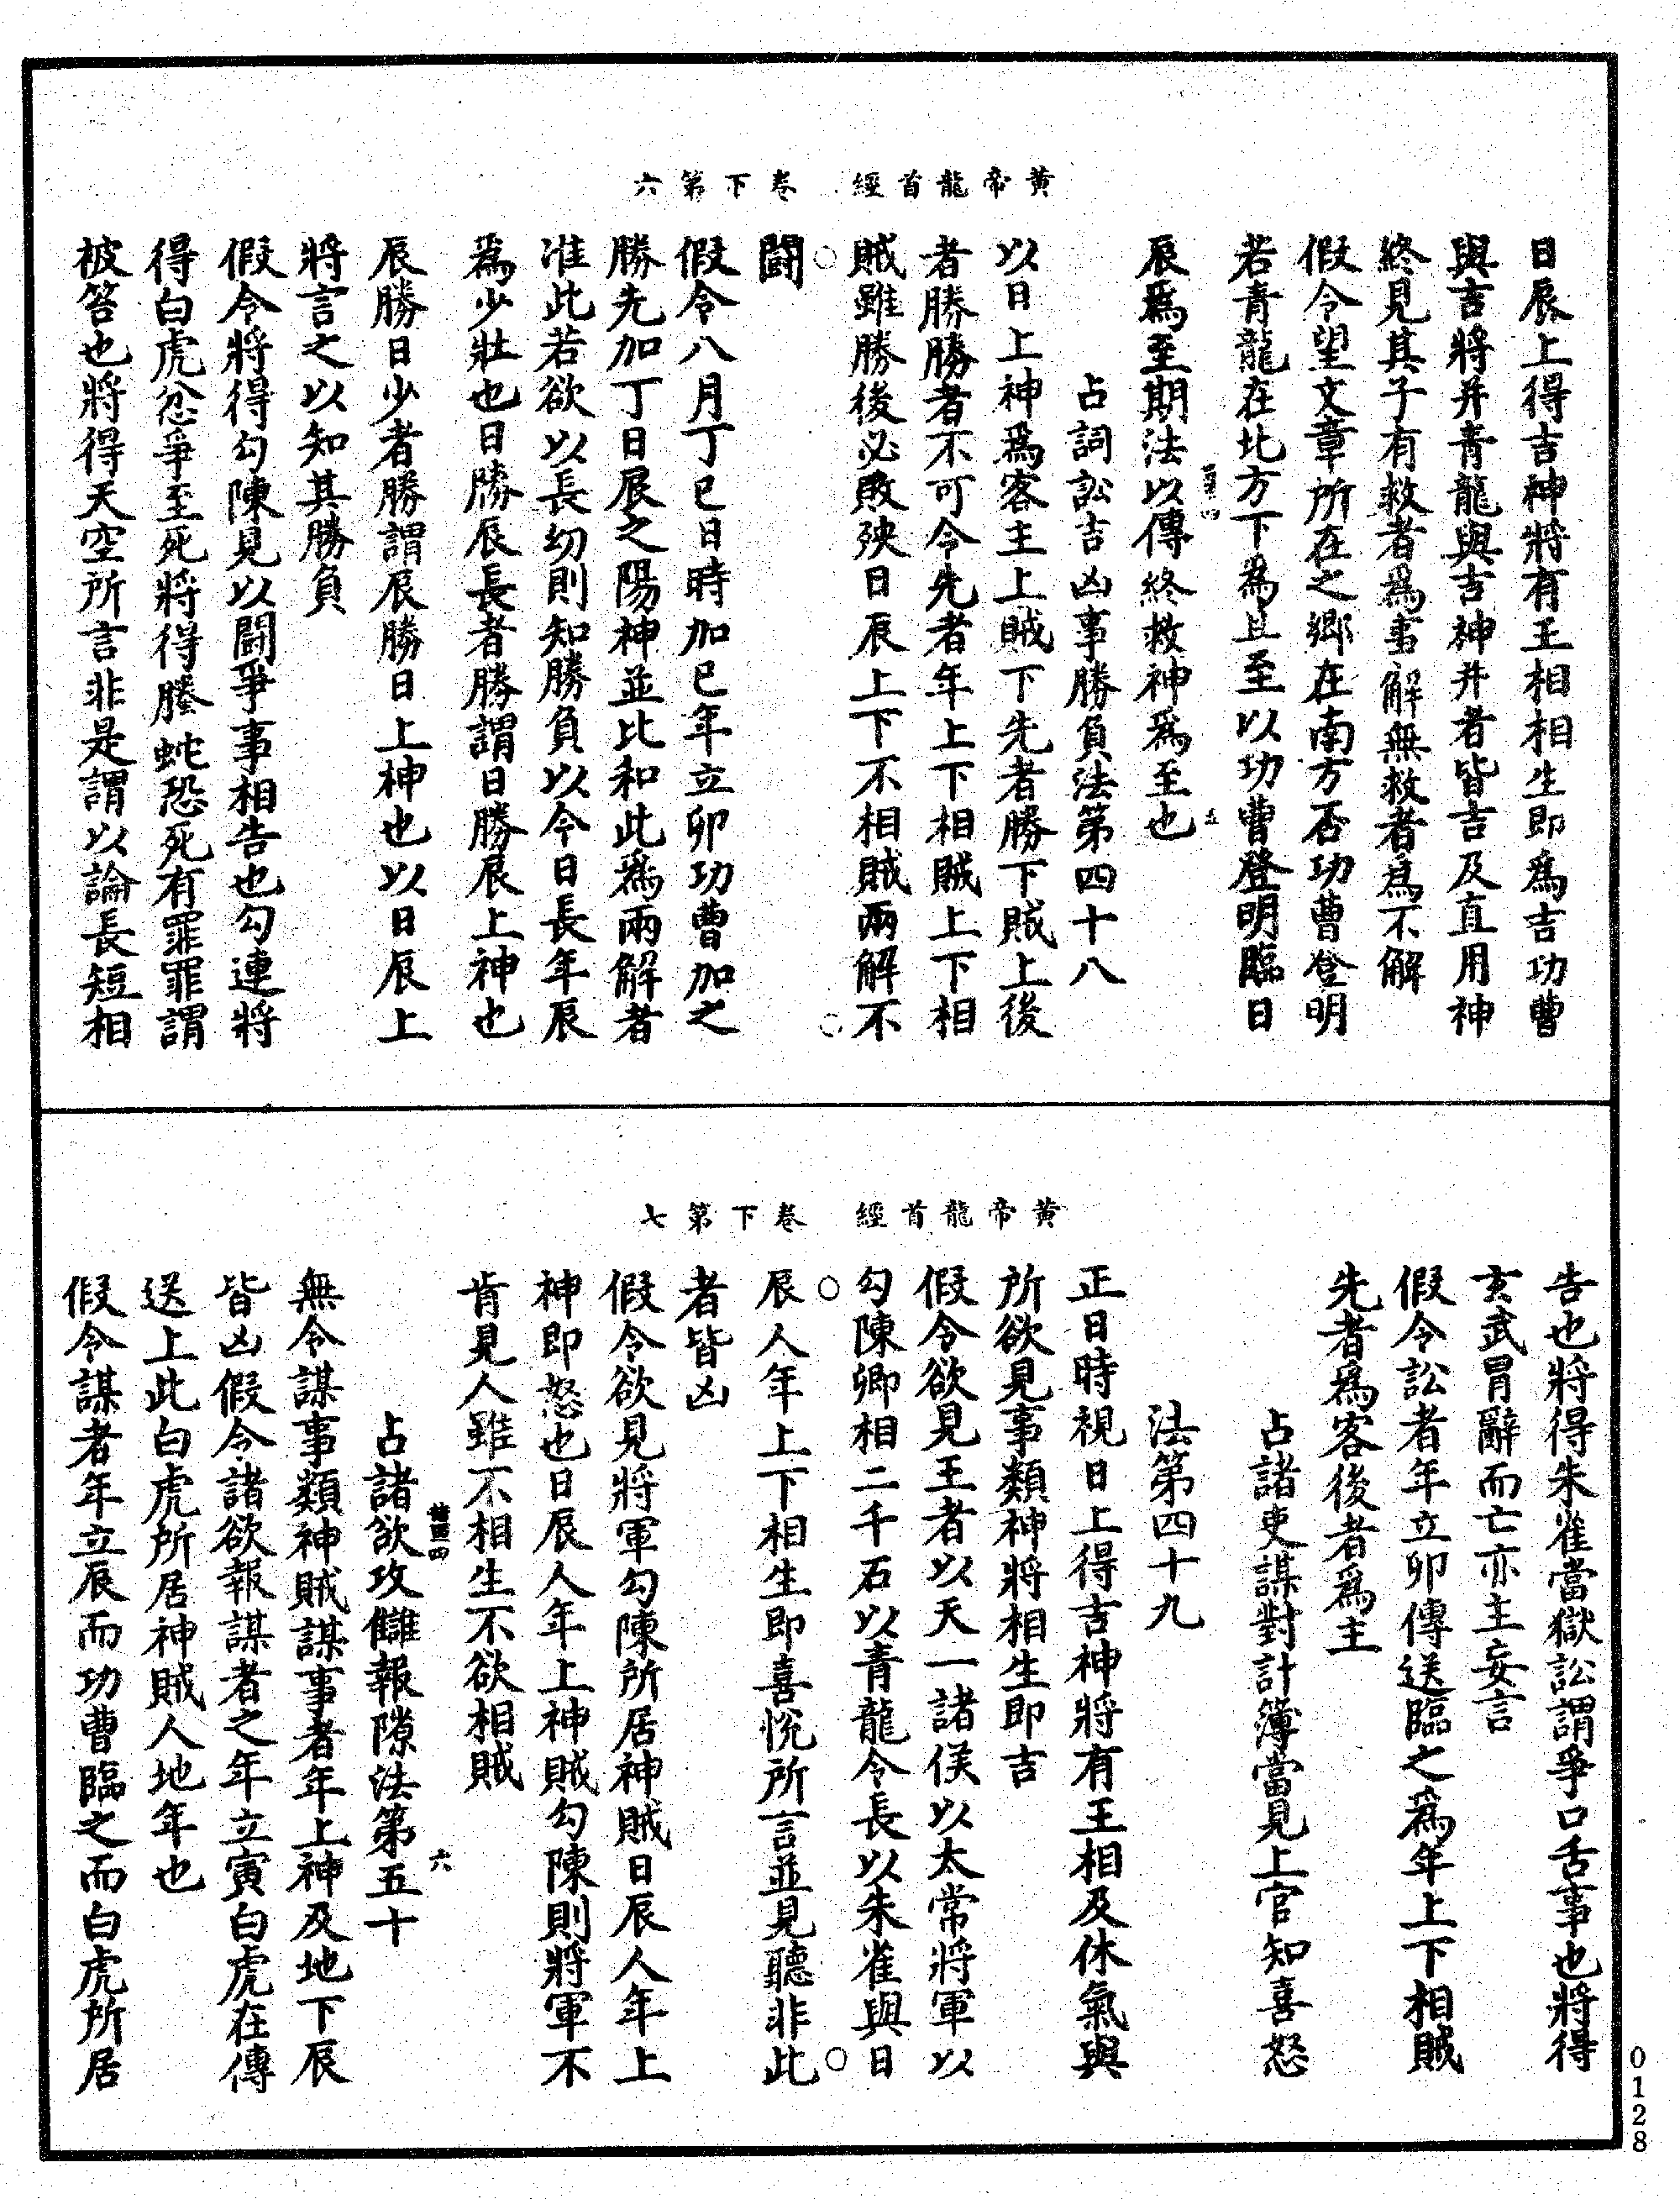 黄帝龍首經　卷下第六
日辰上得吉神將有王相相生即爲吉功曹
與吉將并青龍與吉神并者皆吉及直用神
終見其子有救者爲事解無救者爲不解
假令望文章所在之鄉在南方否功曹登明
若青龍在北方下爲且至以功曹登明臨日
辰爲至期法以傳終救神爲至也
五
占詞訟吉凶事勝負法第四十八
以日上神爲客主上賊下先者勝下賊上後
者勝勝者不可令先者年上下相賊上下相
賊雖勝後必敗殃日辰上下不相賊兩解不
鬬
假令八月丁巳日時加巳年立卯功曹加之
勝先加丁日辰之陽神並比和此爲兩解者
准此若欲以長幼則知勝負以今日長年辰
爲少壯也日勝辰長者勝謂日勝辰上神也
辰勝日少者勝謂辰勝日上神也以日辰上
將言之以知其勝負
假令將得勾陳見以鬬爭事相告也勾連將
得白虎忿爭至死將得螣蛇恐死有罪罪謂
被笞也將得天空所言非是謂以論長短相
黄帝龍首經　卷下第七
告也將得朱雀當獄訟謂爭口舌事也將得
玄武冐辭而亡亦主妄言
假令訟者年立卯傳送臨之爲年上下相賊
先者爲客後者爲主
占諸吏謀對計簿當見上官知喜怒
法第四十九
正日時視日上得吉神將有王相及休氣與
所欲見事類神將相生即吉
假令欲見王者以天一諸侯以太常將軍以
勾陳卿相二千石以青龍令長以朱雀與日
辰人年上下相生即喜悅所言並見聽非此
者皆凶
假令欲見將軍勾陳所居神賊日辰人年上
神即怒也日辰人年上神賊勾陳則將軍不
肯見人雖不相生不欲相賊
六
占諸欲攻讎報隙法第五十
無令謀事類神賊謀事者年上神及地下辰
皆凶假令諸欲報謀者之年立寅白虎在傳
送上此白虎所居神賊人地年也
假令謀者年立辰而功曹臨之而白虎所居
0128